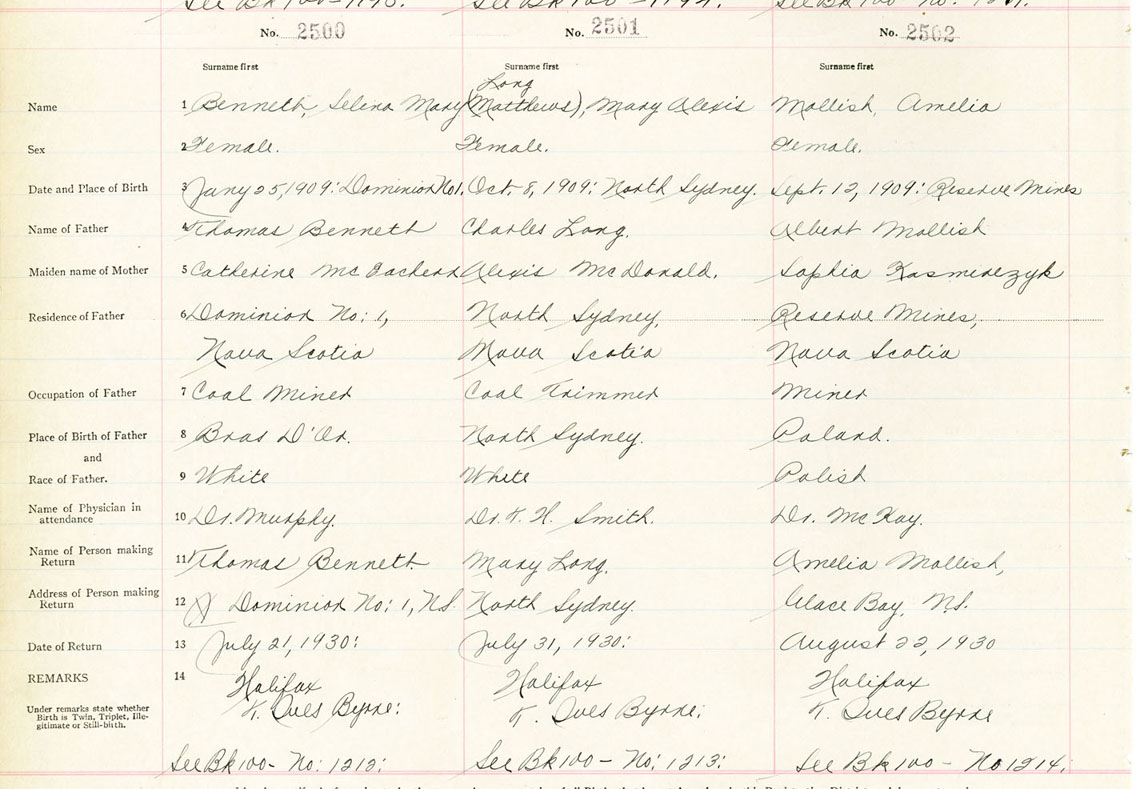 See Bk 100 - 1195. See Bk 100 - 1194. See Bk 100 no. 1201.
No. 2500 No. 2501 No. 2502
Surname first Surname first Surname first
Long
Name 1 Bennett, Selena Mary (Matthews), Mary Alexis Mollish, Amelia
Sex 2 Female. Female. Female.
Date and Place of Birth 3 Jany 25, 1909: Dominion No1, Oct. 8, 1909: North Sydney. Sept. 12, 1909: Reserve Mines
Name of Father 4 Thomas Bennett Charles Long. Albert Mollish
Maiden name of Mother 5 Catherine McEachern Alexis McDonald. Sophia Kasmirezyk
Residence of Father 6 Dominion No: 1, North Sydney, Reserve Mines,
Nova Scotia Nova Scotia Nova Scotia
Occupation of Father 7 Coal Miner Coal Trimmer Miner
Place of Birth of Father 8 Bras D'Or. North Sydney. Poland.
and
Race of Father. 9 White White Polish
Name of Physician in
attendance 10 Dr. Murphy. Dr. T. H. Smith. Dr. McKay.
Name of Person making
Return 11 Thomas Bennett Mary Long. Amelia Mollish,
Address of Person making
Return 12 Dominion No: 1, N.S. North Sydney. Glace Bay, N.S.
Date of Return 13 July 21, 1930: July 31, 1930: August 22, 1930
REMARKS 14 Halifax Halifax Halifax
Under remarks state whether
Birth is Twin, Triplet, Ille-
gitimate or Still-birth.
T. Ives Byrne: T. Ives Byrne: T. Ives Byrne
See Bk 100 - No: 1212: See Bk 100 - No: 1213: See Bk 100 - No 1214.